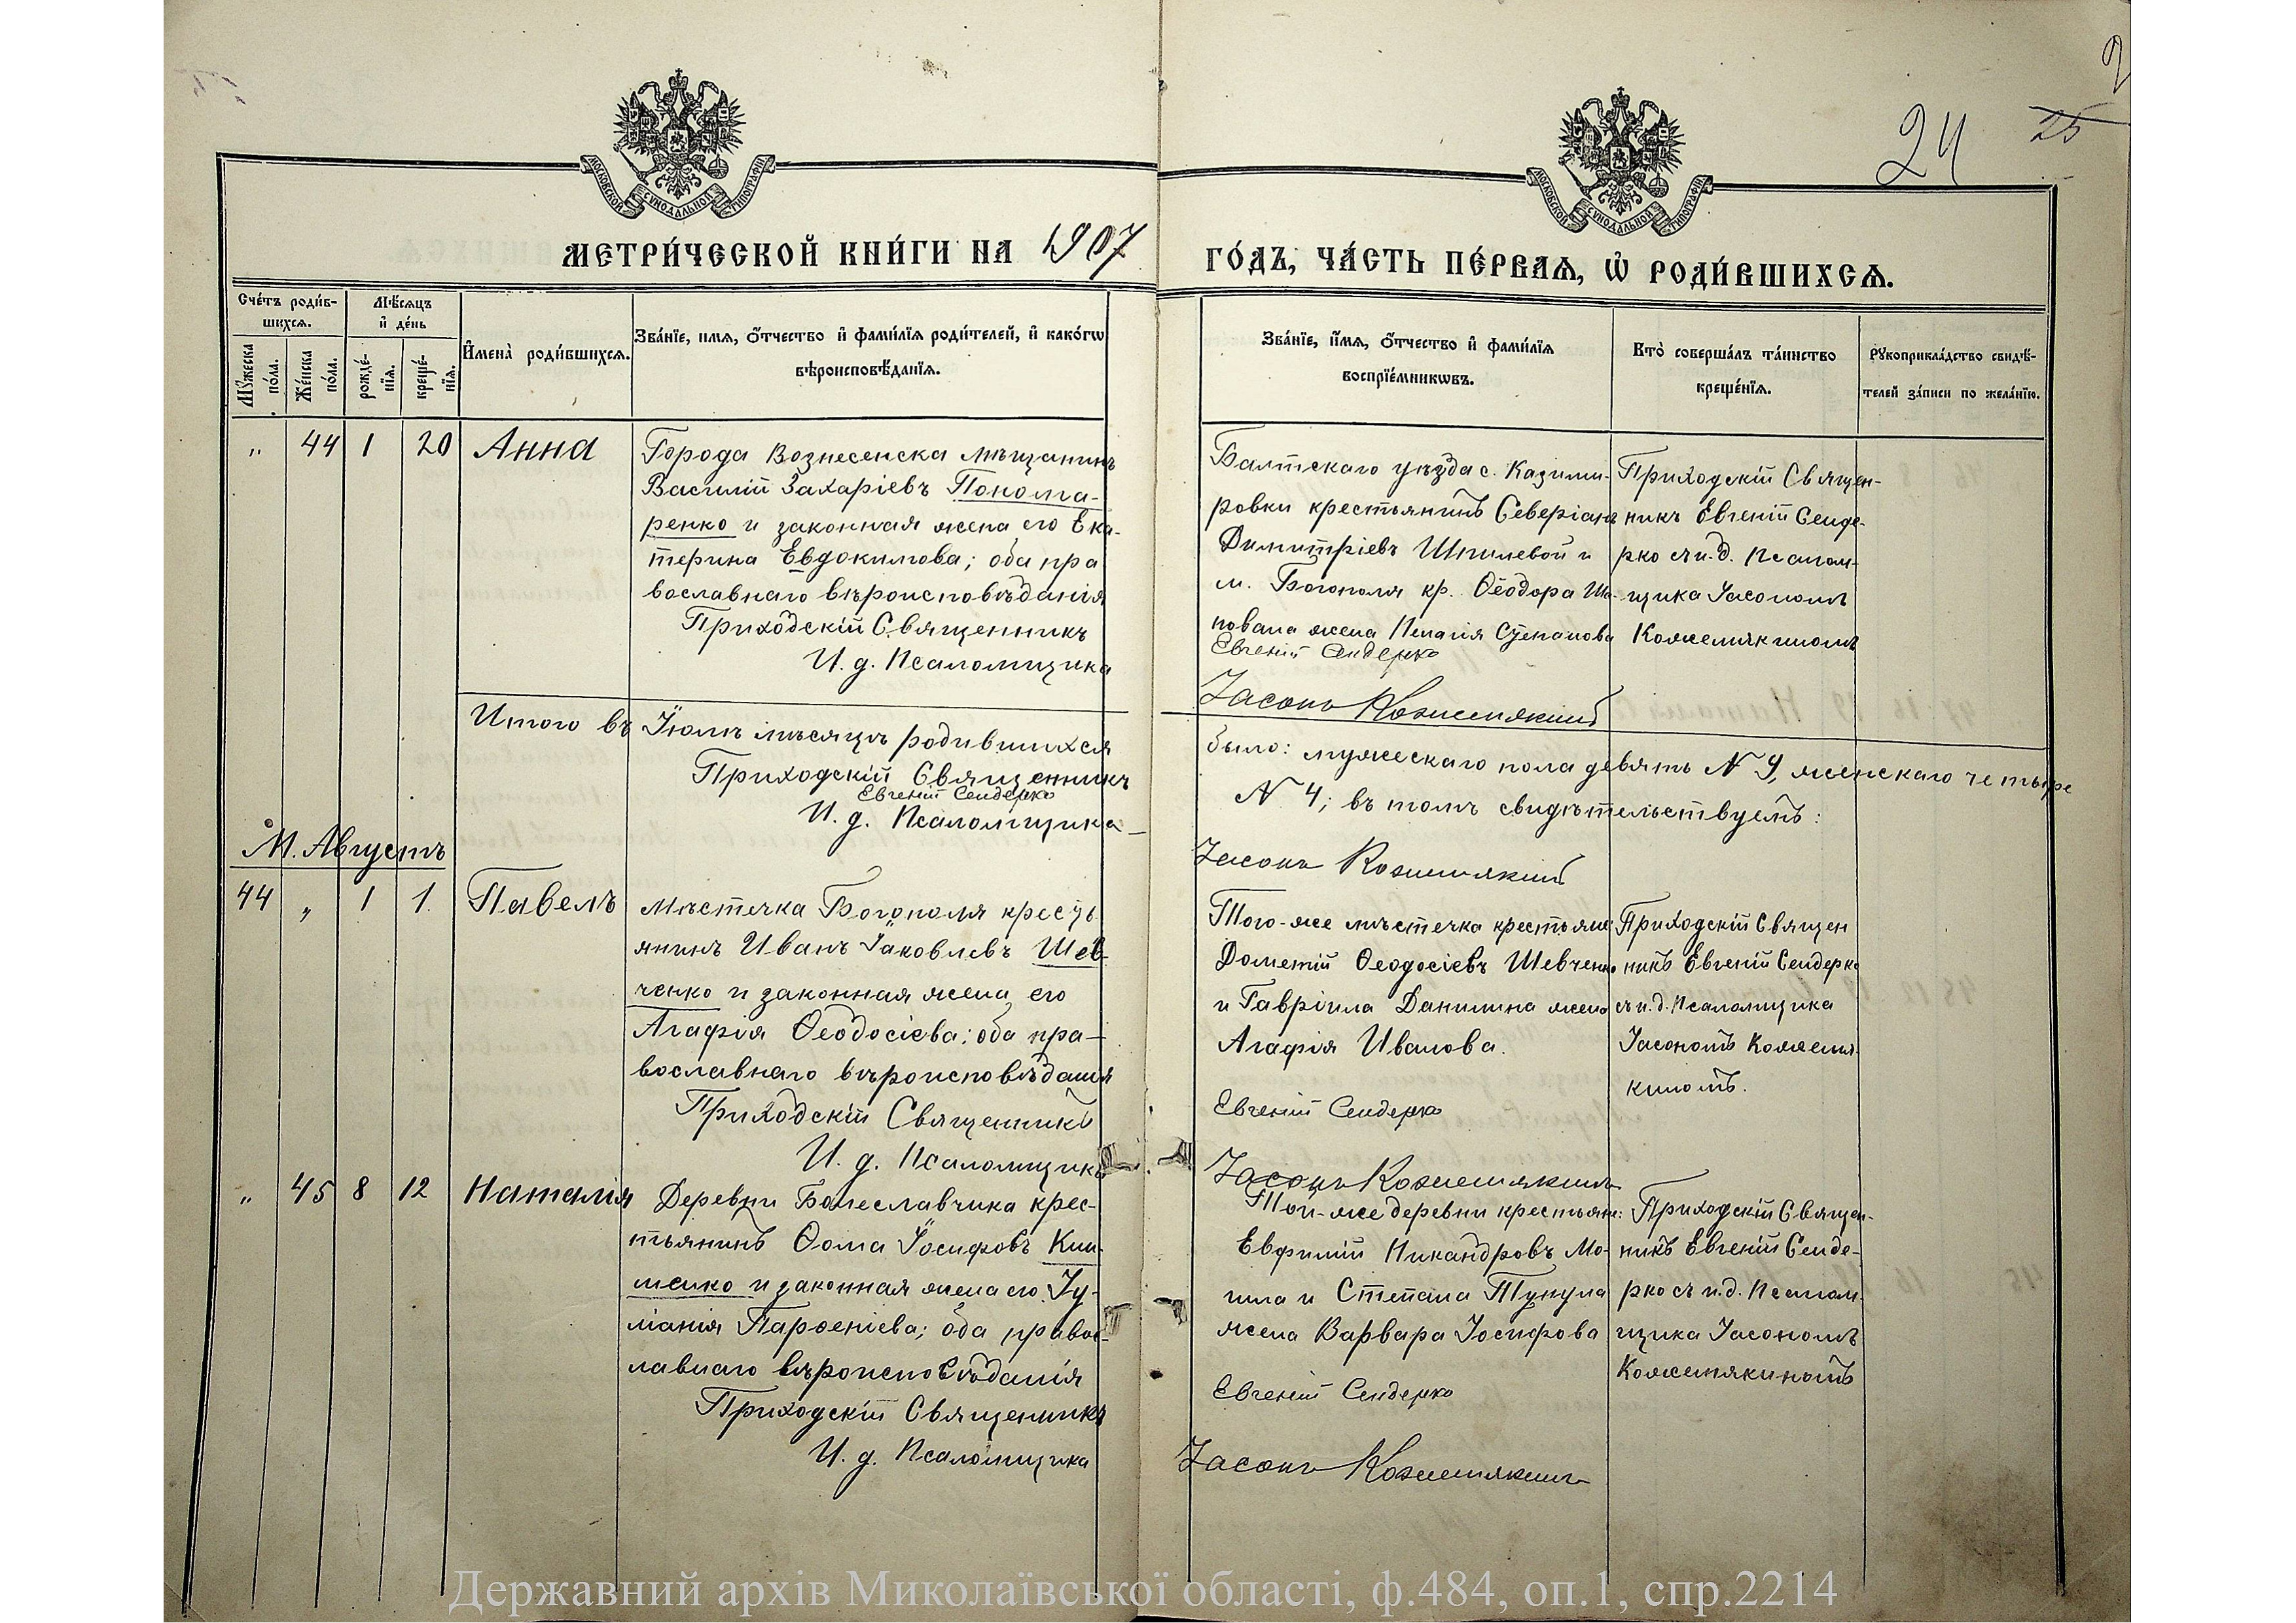 24
25
2
МОСКОВСКОЙ СѴНОДАЛЬНОЙ ТИПОГРАФІИ
МОСКОВСКОЙ СѴНОДАЛЬНОЙ ТИПОГРАФІИ
МЕТРИ́ЧЕСКОЙ КНИ́ГИ НА 1907
ГО́ДЪ, ЧА́СТЬ ПЕ́РВАѦ, Ѡ҆ РОДИ́ВШИХСѦ.
Сче́тъ роди́в-
шихсѧ.
Мѣ́сѧцъ
и҆ де́нь
Мꙋ́жеска
по́ла.
Же́нска
по́ла.
рожде́-
нїѧ.
креще́-
нїѧ.
И҆мена̀ роди́вшихсѧ.
Зва́нїе, имѧ, ѻ҆́тчество и҆ фами́лїѧ роди́телей, и҆ како́гѡ
вѣроисповѣ́данїѧ.
Зва́нїе, и҆́мѧ, ѻ҆́тчество и҆ фами́лїѧ
воспрїе́мникѡвъ.
Кто̀ соверша́лъ та́инство
креще́нїѧ.
Рꙋкоприкла́дство свидѣ́-
телей за́писи по жела́нїю.
" 44 1 20 Анна
Города Вознесенска мѣщанинъ
Василій Захаріевъ Понома-
ренко и законная жена его Ека-
терина Евдокимова; оба пра
вославнаго вѣроисповѣданія
Приходскій Священникъ
И. д. Псаломщика
Балтскаго уѣзда с. Казими-
ровки крестьянинъ Северіанъ
Димитріевъ Шпилевой и
м. Богополя кр. Ѳеодора Ша-
повала жена Пелагія Степанова
Евгеній Сендерко
Іасонъ Кожемякинъ
Приходскій Священ-
никъ Евгеній Сенде-
рко съ и. д. Псалом-
щика Іасономъ
Кожемякиномъ
Итого въ Іюлѣ мѣсяцѣ родившихся
Приходскій Священникъ
Евгеній Сендерко
И. д. Псаломщика
было: мужескаго пола девять № 9, женскаго четыре
№ 4; въ томъ свидѣтельствуемъ:
Іасонъ Кожемякинъ
М. Августъ
44 " 1 1. Павелъ
Мѣстечка Богополя кресть
янинъ Иванъ Іаковлевъ Шев-
ченко и законная жена его
Агафія Ѳеодосіева; оба пра-
вославнаго вѣроисповѣданія
Приходскій Священникъ
И. д. Псаломщика
Того-же мѣстечка крестьяне
Дометій Ѳеодосіевъ Шевченко
и Гавріила Данилина жена
Агафія Иванова.
Евгеній Сендерко
Іасонъ Кожемякинъ
Приходскій Священ
никъ Евгеній Сендерко
съ и. д. Псаломщика
Іасономъ Кожемя-
киномъ.
" 45 8 12 Наталія
Деревни Болеславчика крес-
тьянинъ Ѳома Іосифовъ Кли-
менко и законная жена его Іу-
ліанія Парѳеніева; оба правос-
лавнаго вѣроисповѣданія
Приходскій Священникъ
И. д. Псаломщика
Той-же деревни крестьян:
Евфимій Никандровъ Мо-
гила и Степана Тукула
жена Варвара Іосифова
Евгеній Сендерко
Іасонъ Кожемякинъ
Приходскій Священ-
никъ Евгеній Сенде-
рко съ и. д. Псалом-
щика Іасономъ
Кожемякиномъ
Державний архів Миколаївської області, ф.484, оп.1, спр.2214